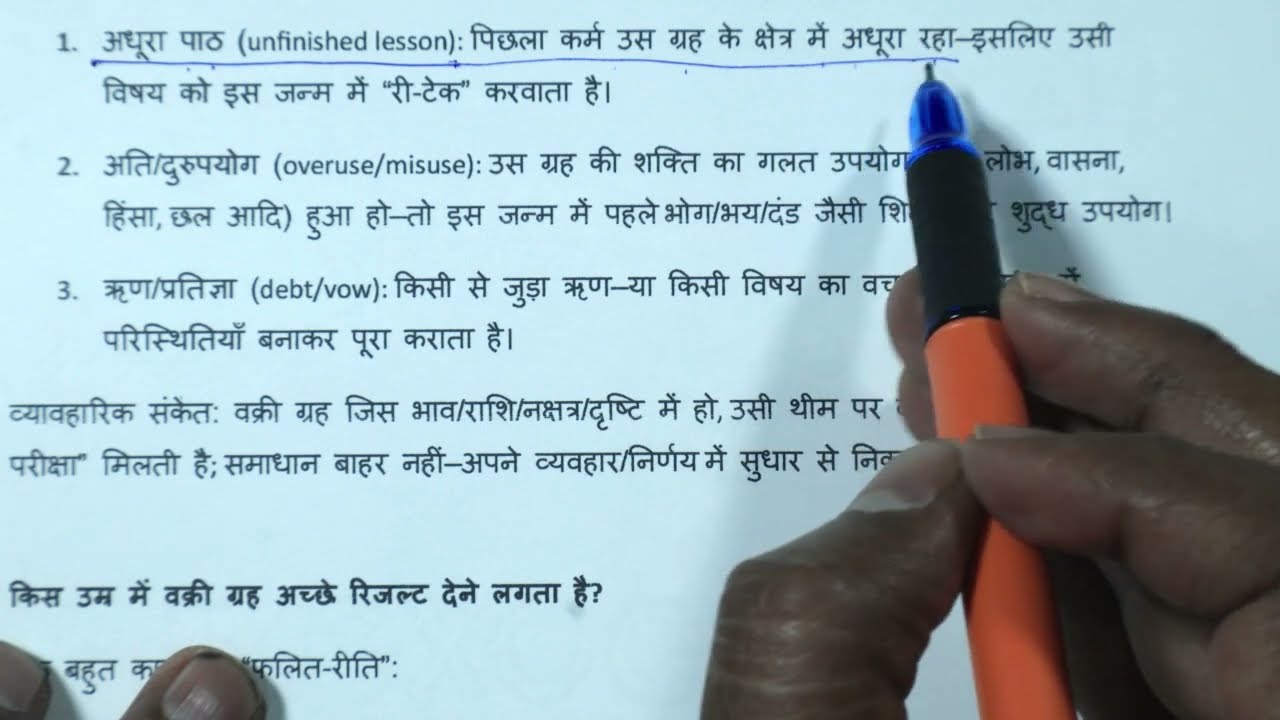 1. अधूरा पाठ (unfinished lesson): पिछला कर्म उस ग्रह के क्षेत्र में अधूरा रहा–इसलिए उसी
विषय को इस जन्म में “री-टेक” करवाता है।
2. अति/दुरुपयोग (overuse/misuse): उस ग्रह की शक्ति का गलत उपयोग लोभ, वासना,
हिंसा, छल आदि) हुआ हो–तो इस जन्म में पहले भोग/भय/दंड जैसी शुद्ध उपयोग।
3. ऋण/प्रतिज्ञा (debt/vow): किसी से जुड़ा ऋण–या किसी विषय का में
परिस्थितियाँ बनाकर पूरा कराता है।
व्यावहारिक संकेत: वक्री ग्रह जिस भाव/राशि/नक्षत्र/दृष्टि में हो, उसी थीम पर
परीक्षा” मिलती है; समाधान बाहर नहीं–अपने व्यवहार/निर्णय में सुधार से
किस उम्र में वक्री ग्रह अच्छे रिजल्ट देने लगता है?
बहुत “फलित-रीति”: